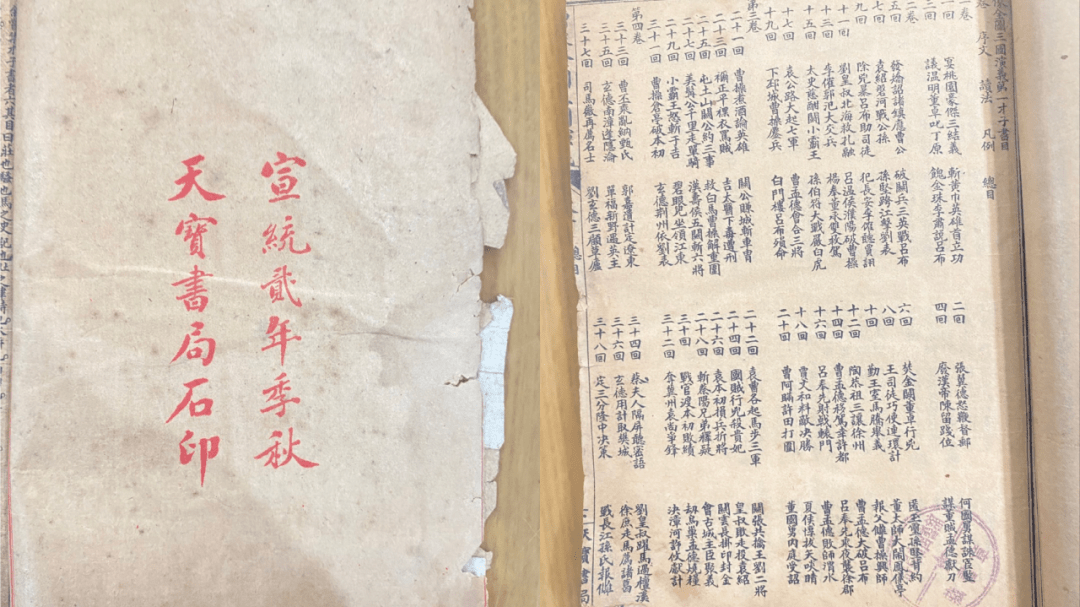 宣統貳年季秋
天寶書局石印
才子書者六其目曰莊也騷也馬之史記也
金圖三國演義第一才子書目
序文 讀法 凡例 總目
一回 宴桃園豪傑三結義 斬黃巾英雄首立功 二回 張翼德怒鞭督郵 何國舅謀誅宦豎
三回 議溫明董卓叱丁原 餽金珠李肅說呂布 四回 廢漢帝陳留踐位 謀董賊孟德獻刀
二卷
五回 發矯詔諸鎮應曹公 破關兵三英戰呂布 六回 焚金闕董卓行兇 匿玉璽孫堅背約
七回 袁紹磐河戰公孫 孫堅跨江擊劉表 八回 王司徒巧使連環計 董太師大鬧鳳儀亭
九回 除兇暴呂布助司徒 犯長安李傕聽賈詡 十回 勤王室馬騰舉義 報父讎曹操興師
十一回 劉皇叔北海救孔融 呂溫侯濮陽破曹操 十二回 陶恭祖三讓徐州 曹孟德大破呂布
十三回 李傕郭汜大交兵 楊奉董承雙救駕 十四回 曹孟德移駕幸許都 呂奉先乘夜襲徐郡
十五回 太史慈酣鬪小霸王 孫伯符大戰嚴白虎 十六回 呂奉先射戟轅門 曹孟德敗師淯水
十七回 袁公路大起七軍 曹孟德會合三將 十八回 賈文和料敵決勝 夏侯惇拔矢啖睛
十九回 下邳城曹操鏖兵 白門樓呂布殞命 二十回 曹阿瞞許田打圍 董國舅內庭受詔
第三卷
二十一回 曹操煮酒論英雄 關公賺城斬車冑 二十二回 袁曹各起馬步三軍 關張共擒王劉二將
二十三回 禰正平裸衣罵賊 吉太醫下毒遭刑 二十四回 國賊行兇殺貴妃 皇叔敗走投袁紹
二十五回 屯土山關公約三事 救白馬曹操解重圍 二十六回 袁本初損兵折將 關雲長掛印封金
二十七回 美髯公千里走單騎 漢壽侯五關斬六將 二十八回 斬蔡陽兄弟釋疑 會古城主臣聚義
二十九回 小霸王怒斬于吉 碧眼兒坐領江東 三十回 戰官渡本初敗績 劫烏巢孟德燒糧
三十一回 曹操倉亭破本初 玄德荊州依劉表 三十二回 奪冀州袁尚爭鋒 決漳河許攸獻計
第四卷
三十三回 曹丕乘亂納甄氏 郭嘉遺計定遼東 三十四回 蔡夫人隔屏聽密語 劉皇叔躍馬過檀溪
三十五回 玄德南漳逢隱淪 單福新野遇英主 三十六回 玄德用計取樊城 徐庶走馬薦諸葛
三十七回 司馬徽再薦名士 劉玄德三顧草廬 三十八回 定三分隆中決策 戰長江孫氏報讎
總目
天寶書局